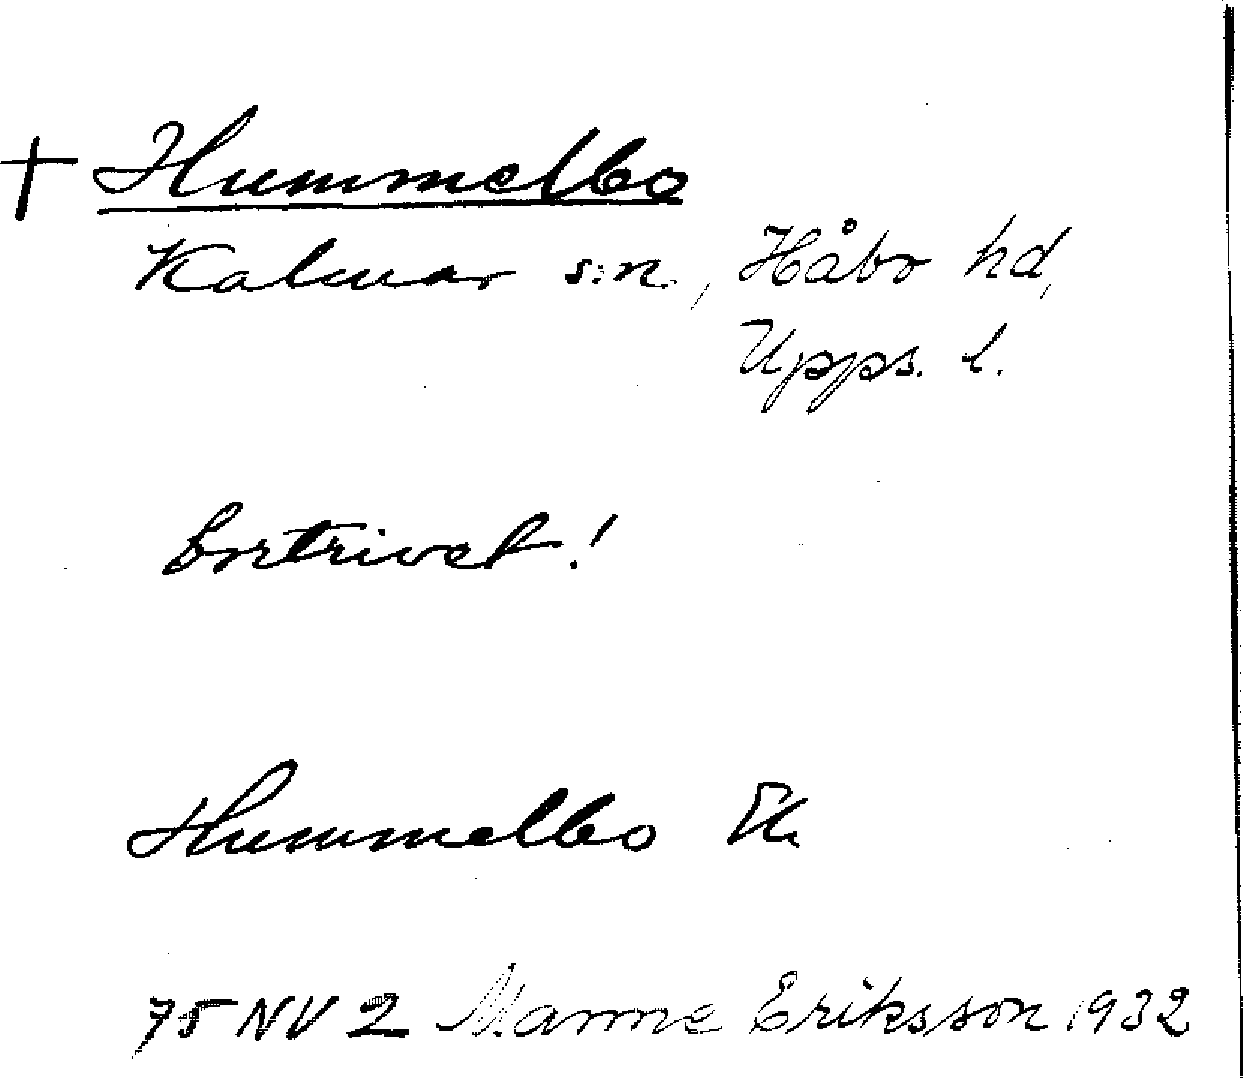 † Hummelbo
Kalmar s:n., Håbo hd,
Upps. l.
bortrivet!
Hummelbo Ek
75 NV 2 Manne Eriksson 1932